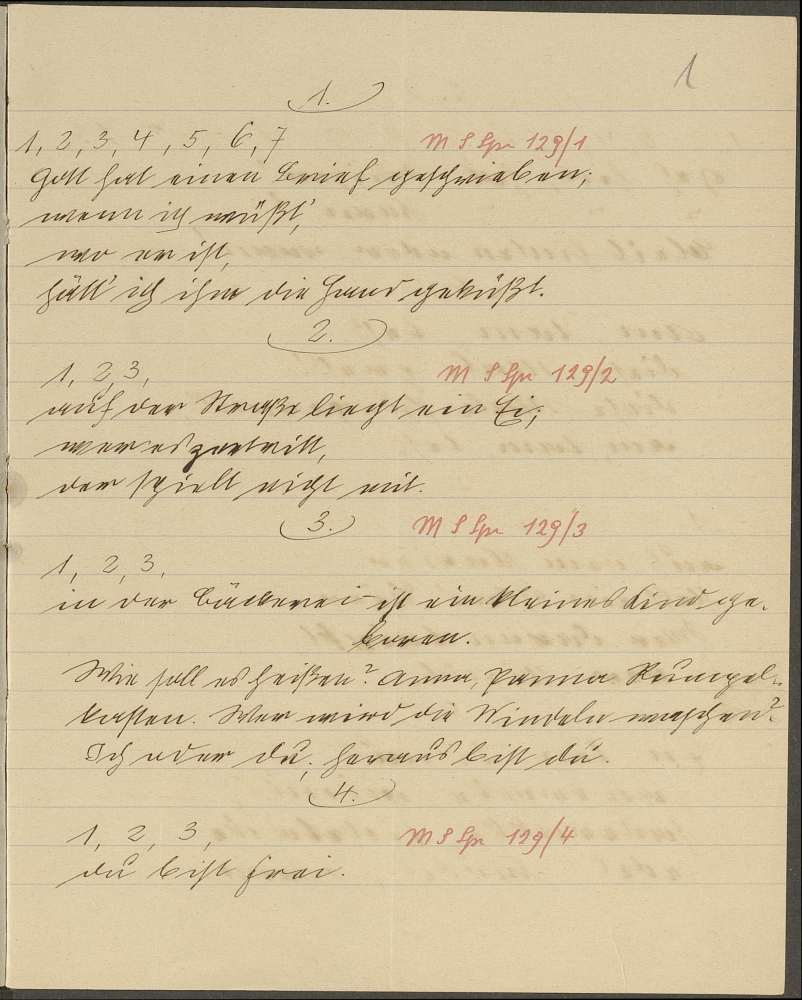 1
1.
1, 2, 3, 4, 5, 6, 7 M S Spr 129/1
Gott hat einen Brief geschrieben;
wenn ich wüßt',
wo er ist,
hätt' ich ihm die Hand geküßt.
2.
1, 2, 3, M S Spr 129/2
auf der Straße liegt ein Ei;
wer es zertritt,
der spielt nicht mit.
3. M S Spr 129/3
1, 2, 3,
in der Bäckerei ist ein kleines Kind ge-
boren.
Wie soll es heißen? Anna, Panna Rumpel-
kasten. Wer wird die Windeln waschen?
Ich oder du, heraus bist du.
4.
1, 2, 3, M S Spr 129/4
du bist frei.